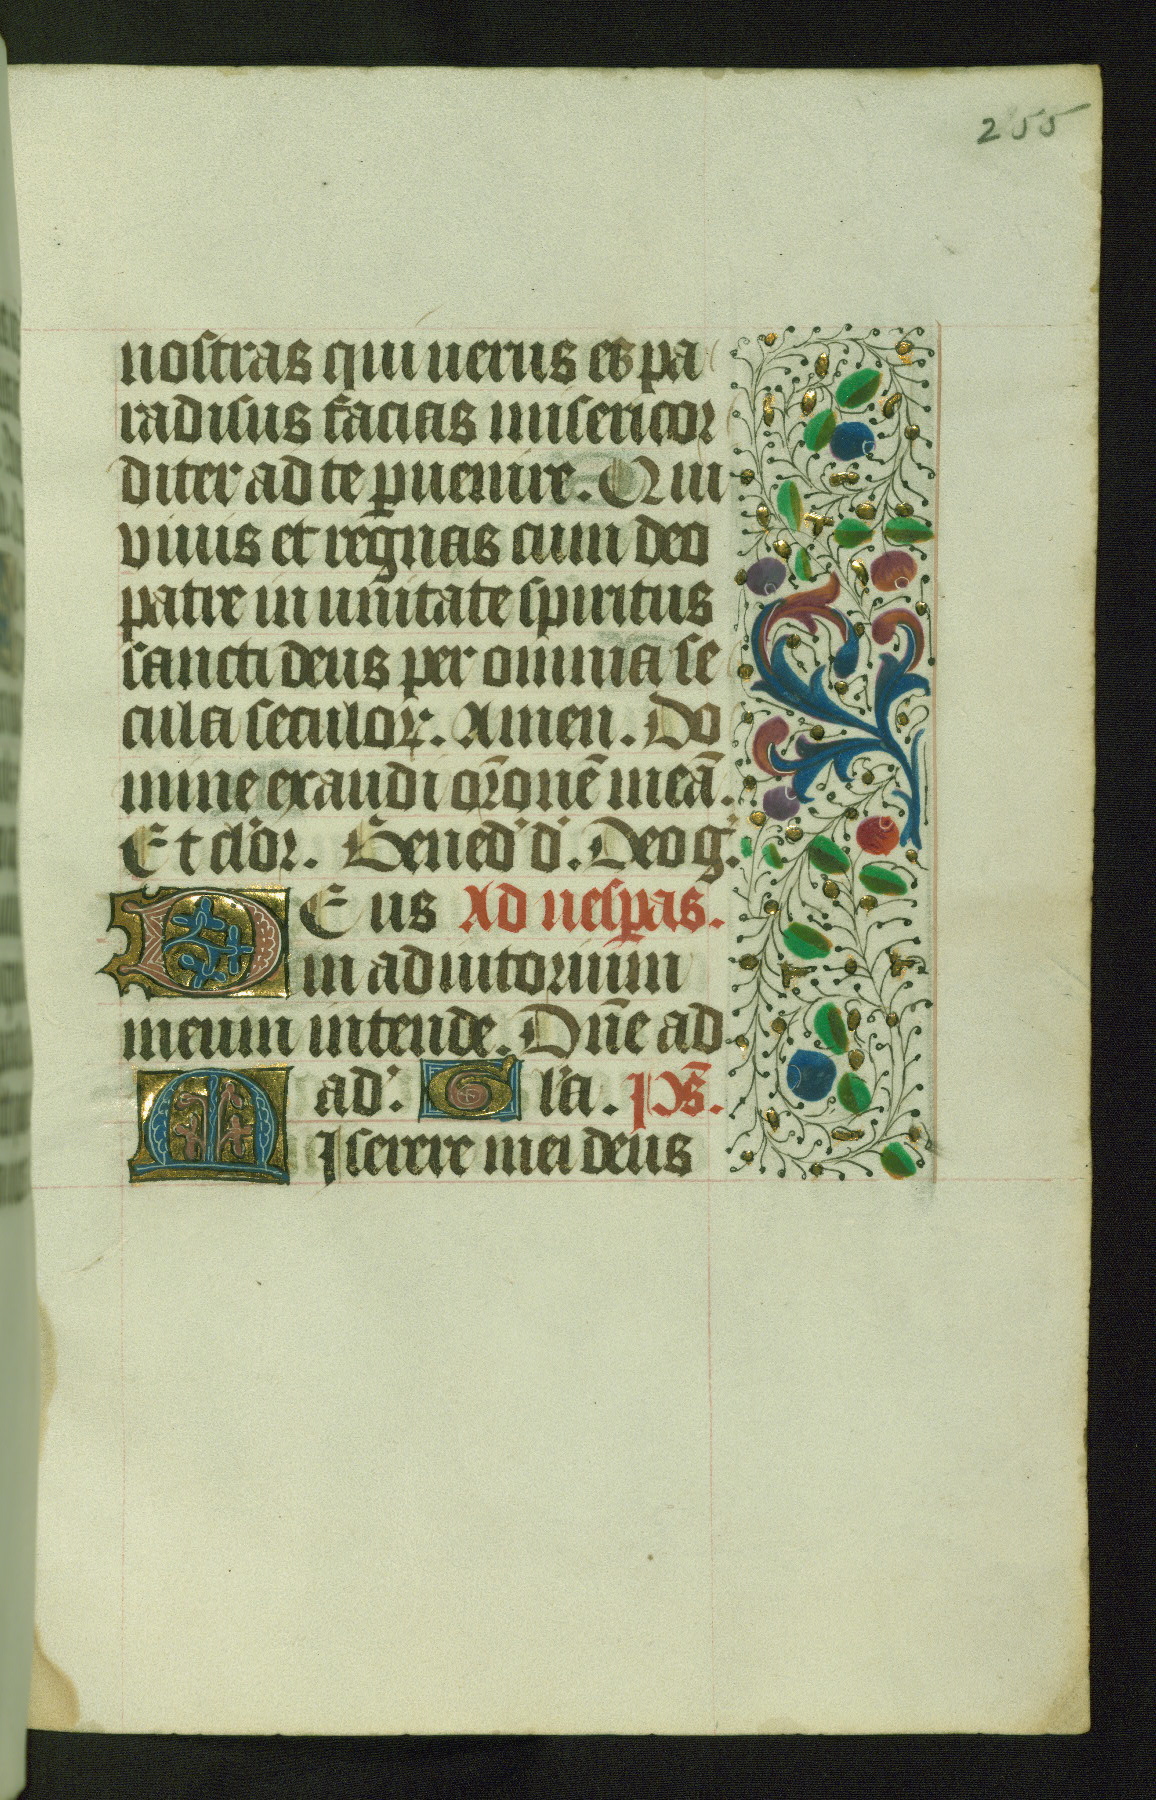 255
nostras qui uerus es pa
radisus facias misericor
diter ad te ꝑuenire. Qui
viuis et regnas cum deo
patre in unitate spiritus
sancti deus per omnia se
cula seculoꝝ. Amen. Do
mine exaudi or̄onē meā.
Et cl'or. Bened' d'. Deo g'.
DEus Ad uesꝑas.
in adiutorium
meum intende. Dn̄e ad
ad'. Gl'ia. ps̄.
MIserere mei deus